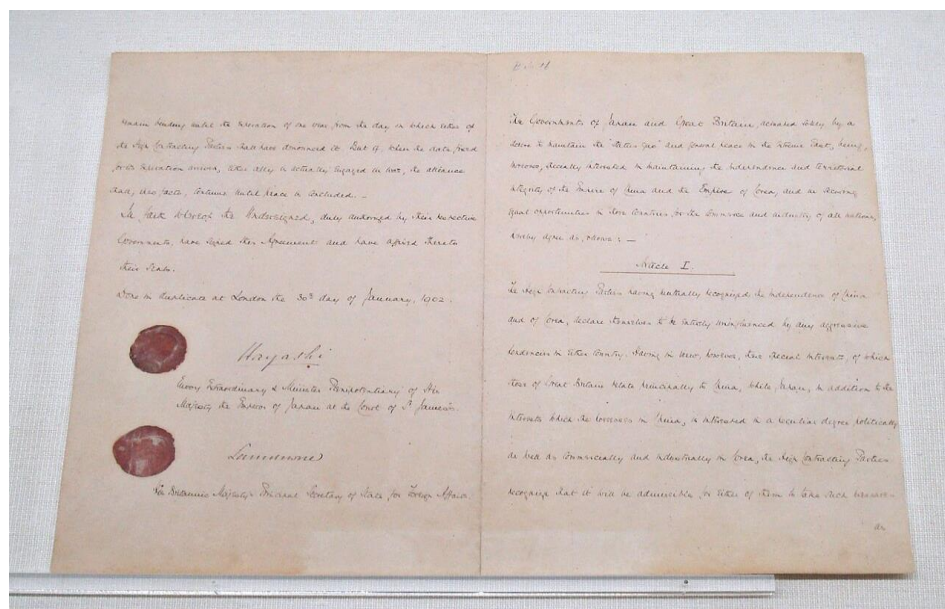 remain binding until the expiration of one year from the day on which either of
the High Contracting Parties shall have denounced it. But if, when the date fixed
for its expiration arrives, either ally is actually engaged in war, the alliance
shall, ipso facto, continue until peace is concluded.
In faith whereof the Undersigned, duly authorized by their respective
Governments, have signed this Agreement and have affixed thereto
their Seals.
Done in duplicate at London the 30th day of January, 1902.
Hayashi
Envoy Extraordinary & Minister Plenipotentiary of His
Majesty the Emperor of Japan at the Court of St James's.
Lansdowne
His Britannic Majesty's Principal Secretary of State for Foreign Affairs
The Governments of Japan and Great Britain, actuated solely by a
desire to maintain the status quo and general peace in the Extreme East, being,
moreover, specially interested in maintaining the independence and territorial
integrity of the Empire of China and the Empire of Corea, and in securing
equal opportunities in those countries for the commerce and industry of all nations,
hereby agree as follows: —
Article I.
The High Contracting Parties having mutually recognized the independence of China
and of Corea, declare themselves to be entirely uninfluenced by any aggressive
tendencies in either country. Having in view, however, their special interests, of which
those of Great Britain relate principally to China, while Japan, in addition to the
interests which she possesses in China, is interested in a peculiar degree politically
as well as commercially and industrially in Corea, the High Contracting Parties
recognize that it will be admissible for either of them to take such measures
as